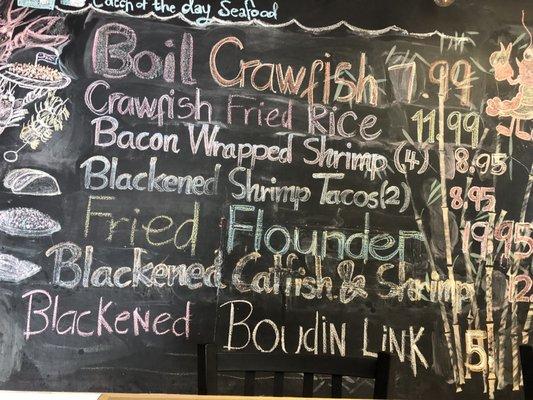 Catch of the day Seafood
Boil Crawfish 7.99
Crawfish Fried Rice 11.99
Bacon Wrapped Shrimp (4) 8.95
Blackened Shrimp Tacos (2) 8.95
Fried Flounder
Blackened Catfish & Shrimp
Blackened Boudin Link 5